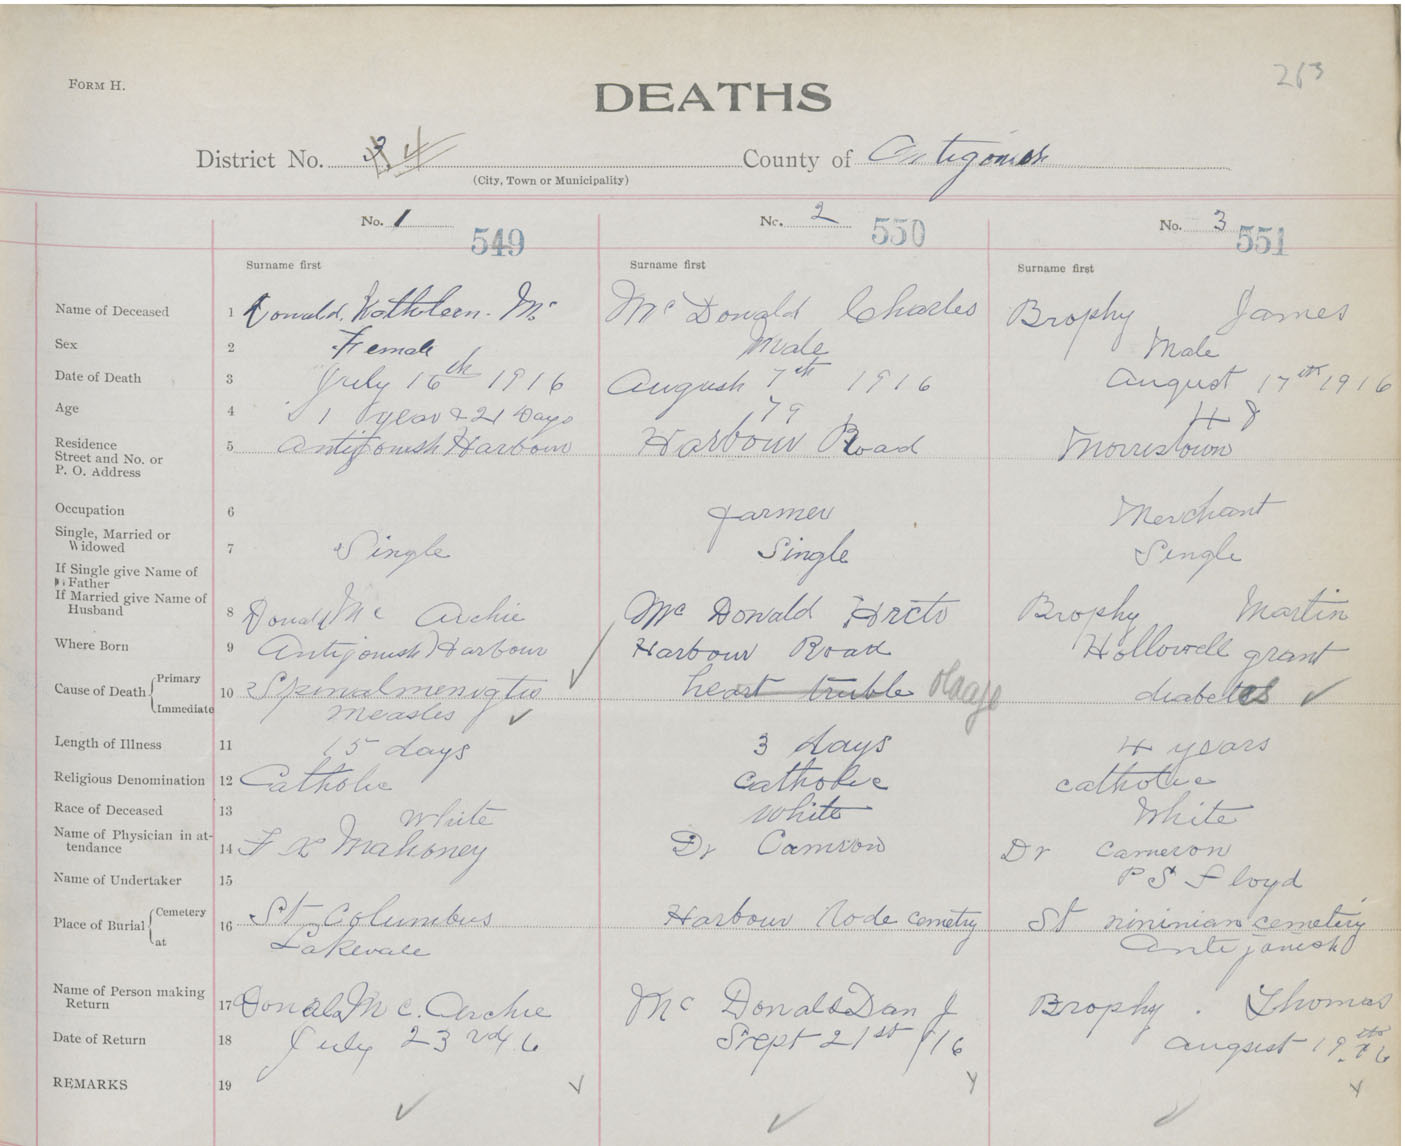 263
FORM H.
DEATHS
District No. 3 4
County of Antigonish
(City, Town or Municipality)
No. 1 549
No. 2 550
No. 3 551
Surname first
Surname first
Surname first
Name of Deceased 1 Donald, Kathleen. Mc McDonald Charles Brophy James
Sex 2 Female Male Male
Date of Death 3 July 16th 1916 August 7th 1916 August 17th 1916
Age 4 1 year & 21 Days 79 48
Residence
Street and No. or
P. O. Address
5 Antigonish Harbour Harbour Road Morristown
Occupation 6 farmer Merchant
Single, Married or
Widowed
7 Single Single Single
If Single give Name of
Father
If Married give Name of
Husband
8 Donald Mc Archie Mc Donald Brophy Martin
Where Born 9 Antigonish Harbour Harbour Road Hollowell grant
Cause of Death { Primary
Immediate
10 Spinal menigtis heart truble old age diabetes
measles
Length of Illness 11 15 days 3 days 4 years
Religious Denomination 12 Catholic catholic catholic
Race of Deceased 13 White white White
Name of Physician in at-
tendance
14 F X Mahoney Dr Camron Dr Cameron
Name of Undertaker 15 P S Floyd
Place of Burial { Cemetery
at
16 St Columbus Harbour Rode cemetry St nininian cemetery
Lakevale Antigonish
Name of Person making
Return
17 Donald Mc. Archie Mc Donald Dan J Brophy. Thomas
Date of Return 18 July 23rd 16 Sept 21st /16 august 19th 16
REMARKS 19